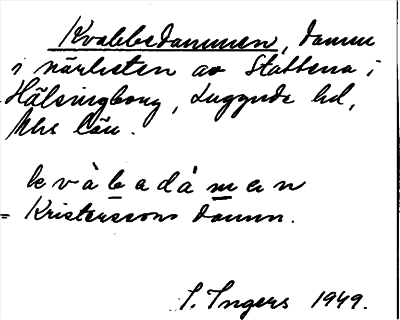 Kvabbsdammen, damm
i närheten av Stattena i
Hälsingborg, Luggude hd,
Mhs län.
k v à b a d á m a n
= Kristerssons damm.
I. Ingers 1949.